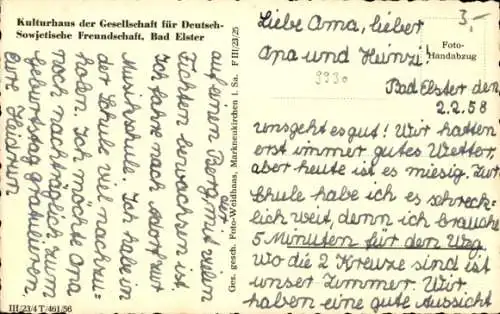 Kulturhaus der Gesellschaft für Deutsch-
Sowjetische Freundschaft, Bad Elster
3.-
Foto-
Handabzug
9930
Liebe Oma, lieber
Opa und Heinzi!
Bad Elster den,
2.2.58
uns geht es gut! Wir hatten
erst immer gutes Wetter,
aber heute ist es miesig. Zur
Schule habe ich es schreck-
lich weit, denn ich brauche
5 Minuten für den Weg.
wo die 2 Kreuze sind ist
unser Zimmer. Wir
haben eine gute Aussicht
auf einen Berg, der mit vielen
Fichten bewachsen ist.
Ich fahre nach Adorf zur
Musikschule. Ich habe in
der Schule viel nachzu-
holen. Ich möchte Opa
noch nachträglich zum
Geburtstag gratulieren.
Eure Heidrun
Ges. gesch. Foto-Weidhaas, Markneukirchen i. Sa. F III/23/25
III/23/4 T/461/56